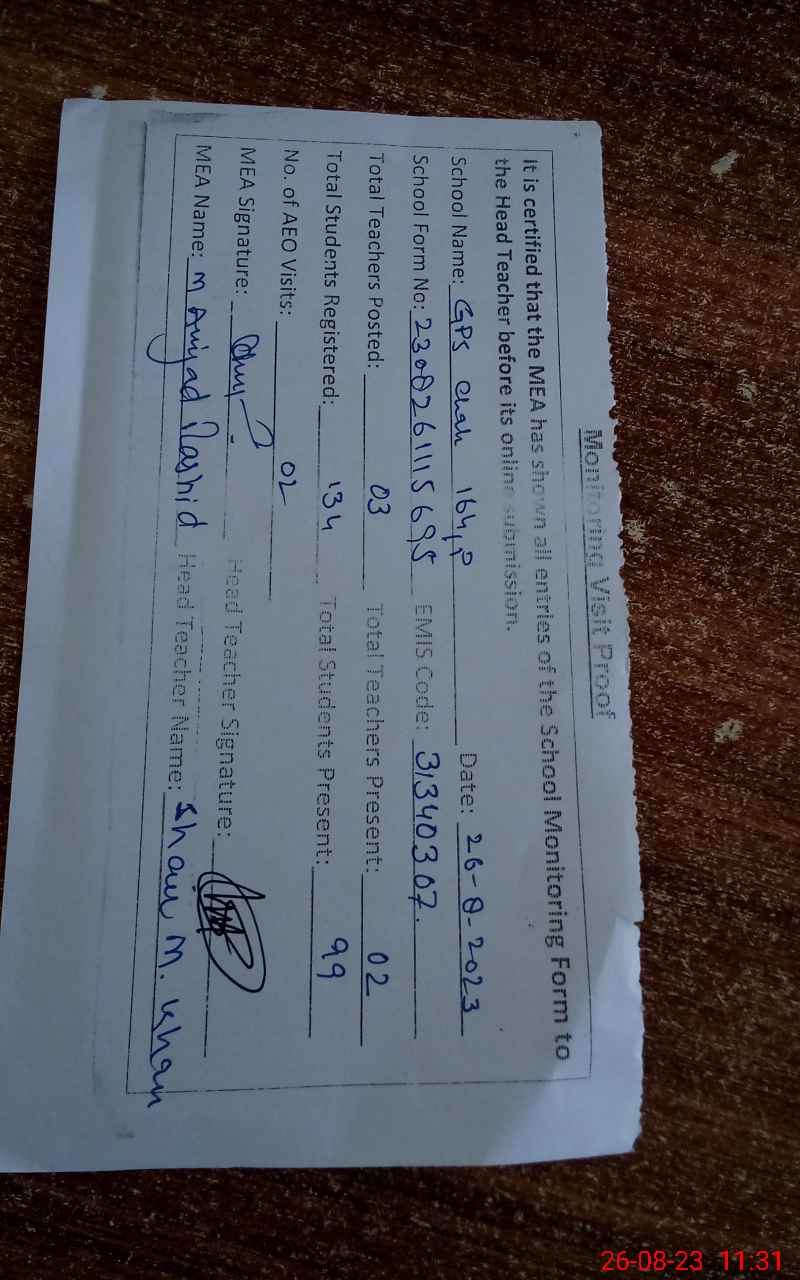 Monitoring Visit Proof
It is certified that the MEA has shown all entries of the School Monitoring Form to
the Head Teacher before its online submission.
School Name: GPS Chak 164, P Date: 26-8-2023
School Form No: 2308261115695 EMIS Code: 31340307.
Total Teachers Posted: 03 Total Teachers Present: 02
Total Students Registered: 134 Total Students Present: 99
No. of AEO Visits: 02
MEA Signature: Head Teacher Signature:
MEA Name: M Amjad Rashid Head Teacher Name: M. Khan
26-08-23 11:31